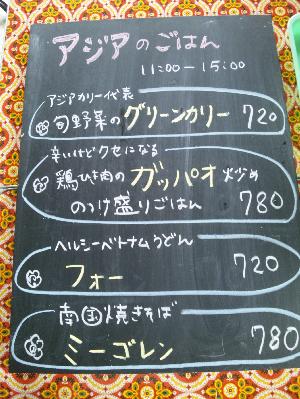 アジアのごはん
11:00-15:00
アジアカリー代表
旬野菜のグリーンカリー 720
辛いけどクセになる
鶏ひき肉のガッパオ炒め
のっけ盛りごはん 780
ヘルシーベトナムうどん
フォー 720
南国焼きそば
ミーゴレン 780